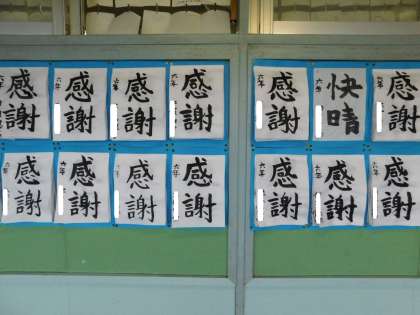 感謝
六年
感謝
六年
感謝
六年
感謝
六年
感謝
六年
快晴
六年
感謝
六年
感謝
六年
感謝
六年
感謝
六年
感謝
六年
感謝
六年
感謝
六年
感謝
六年